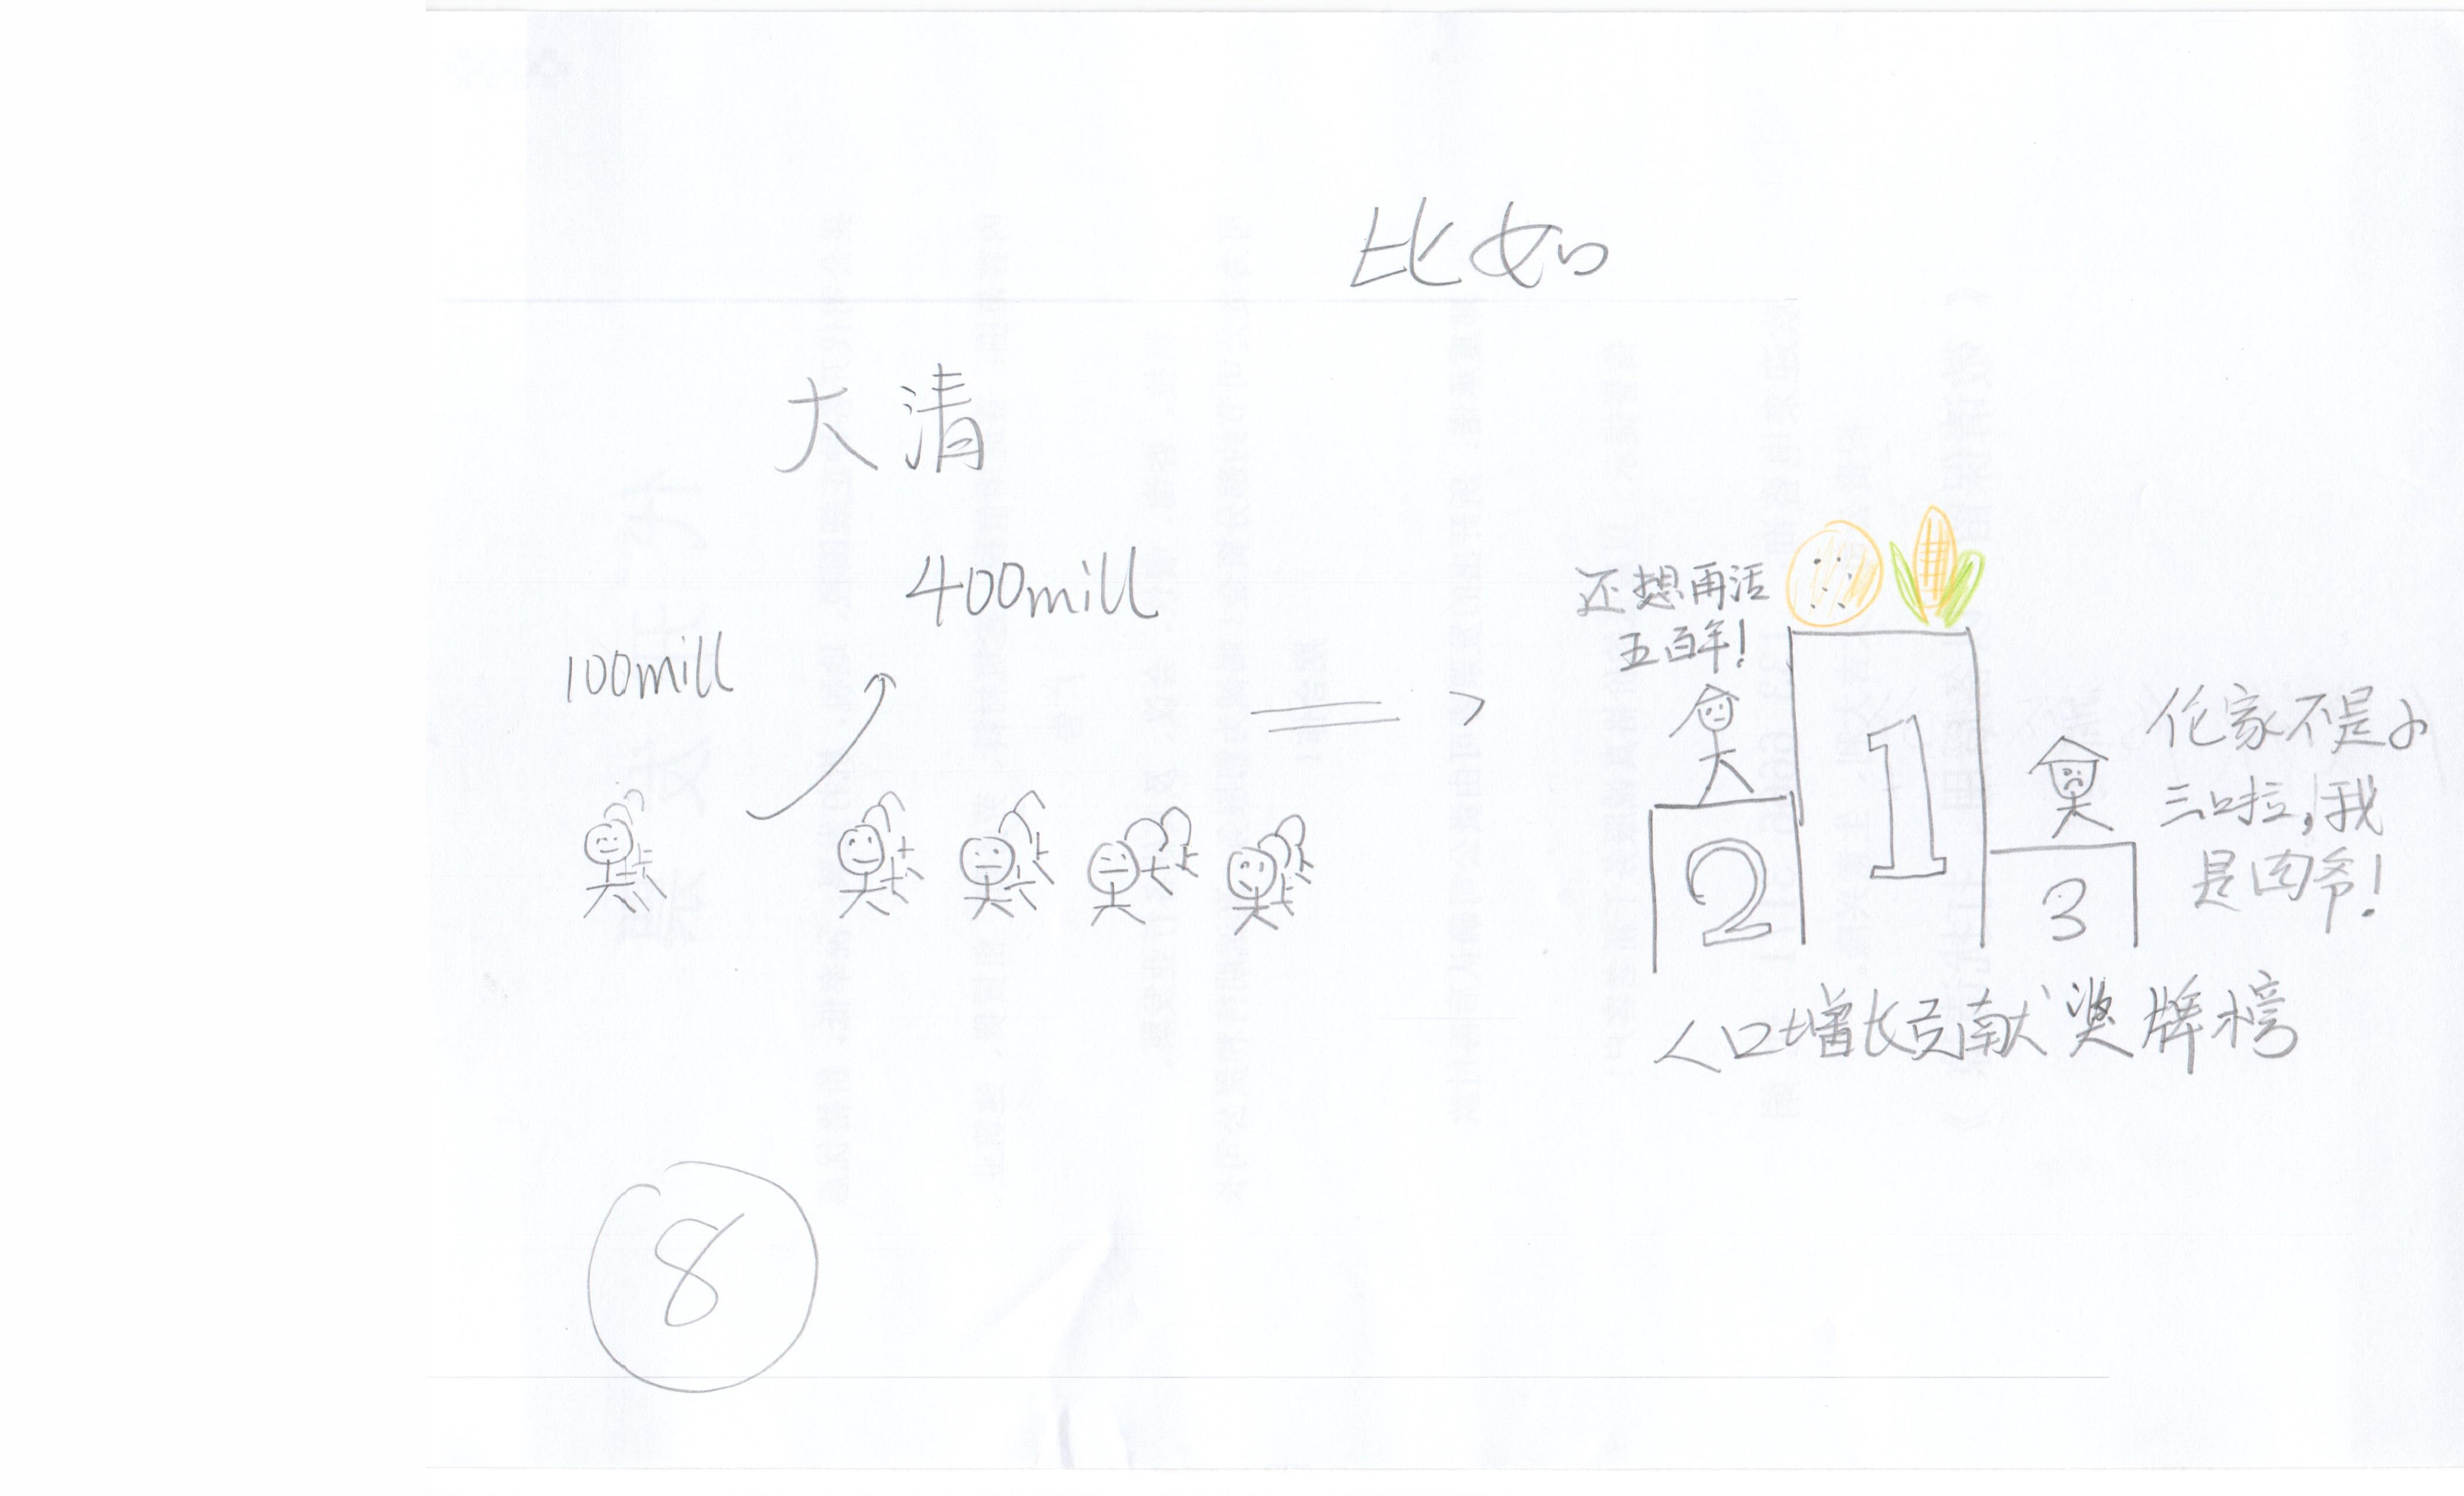 比如
大清
400mill
100mill
还想再活
五百年!
伦家不是小
三啦,我
是四爷!
2
1
3
人口增长贡献奖牌榜
8